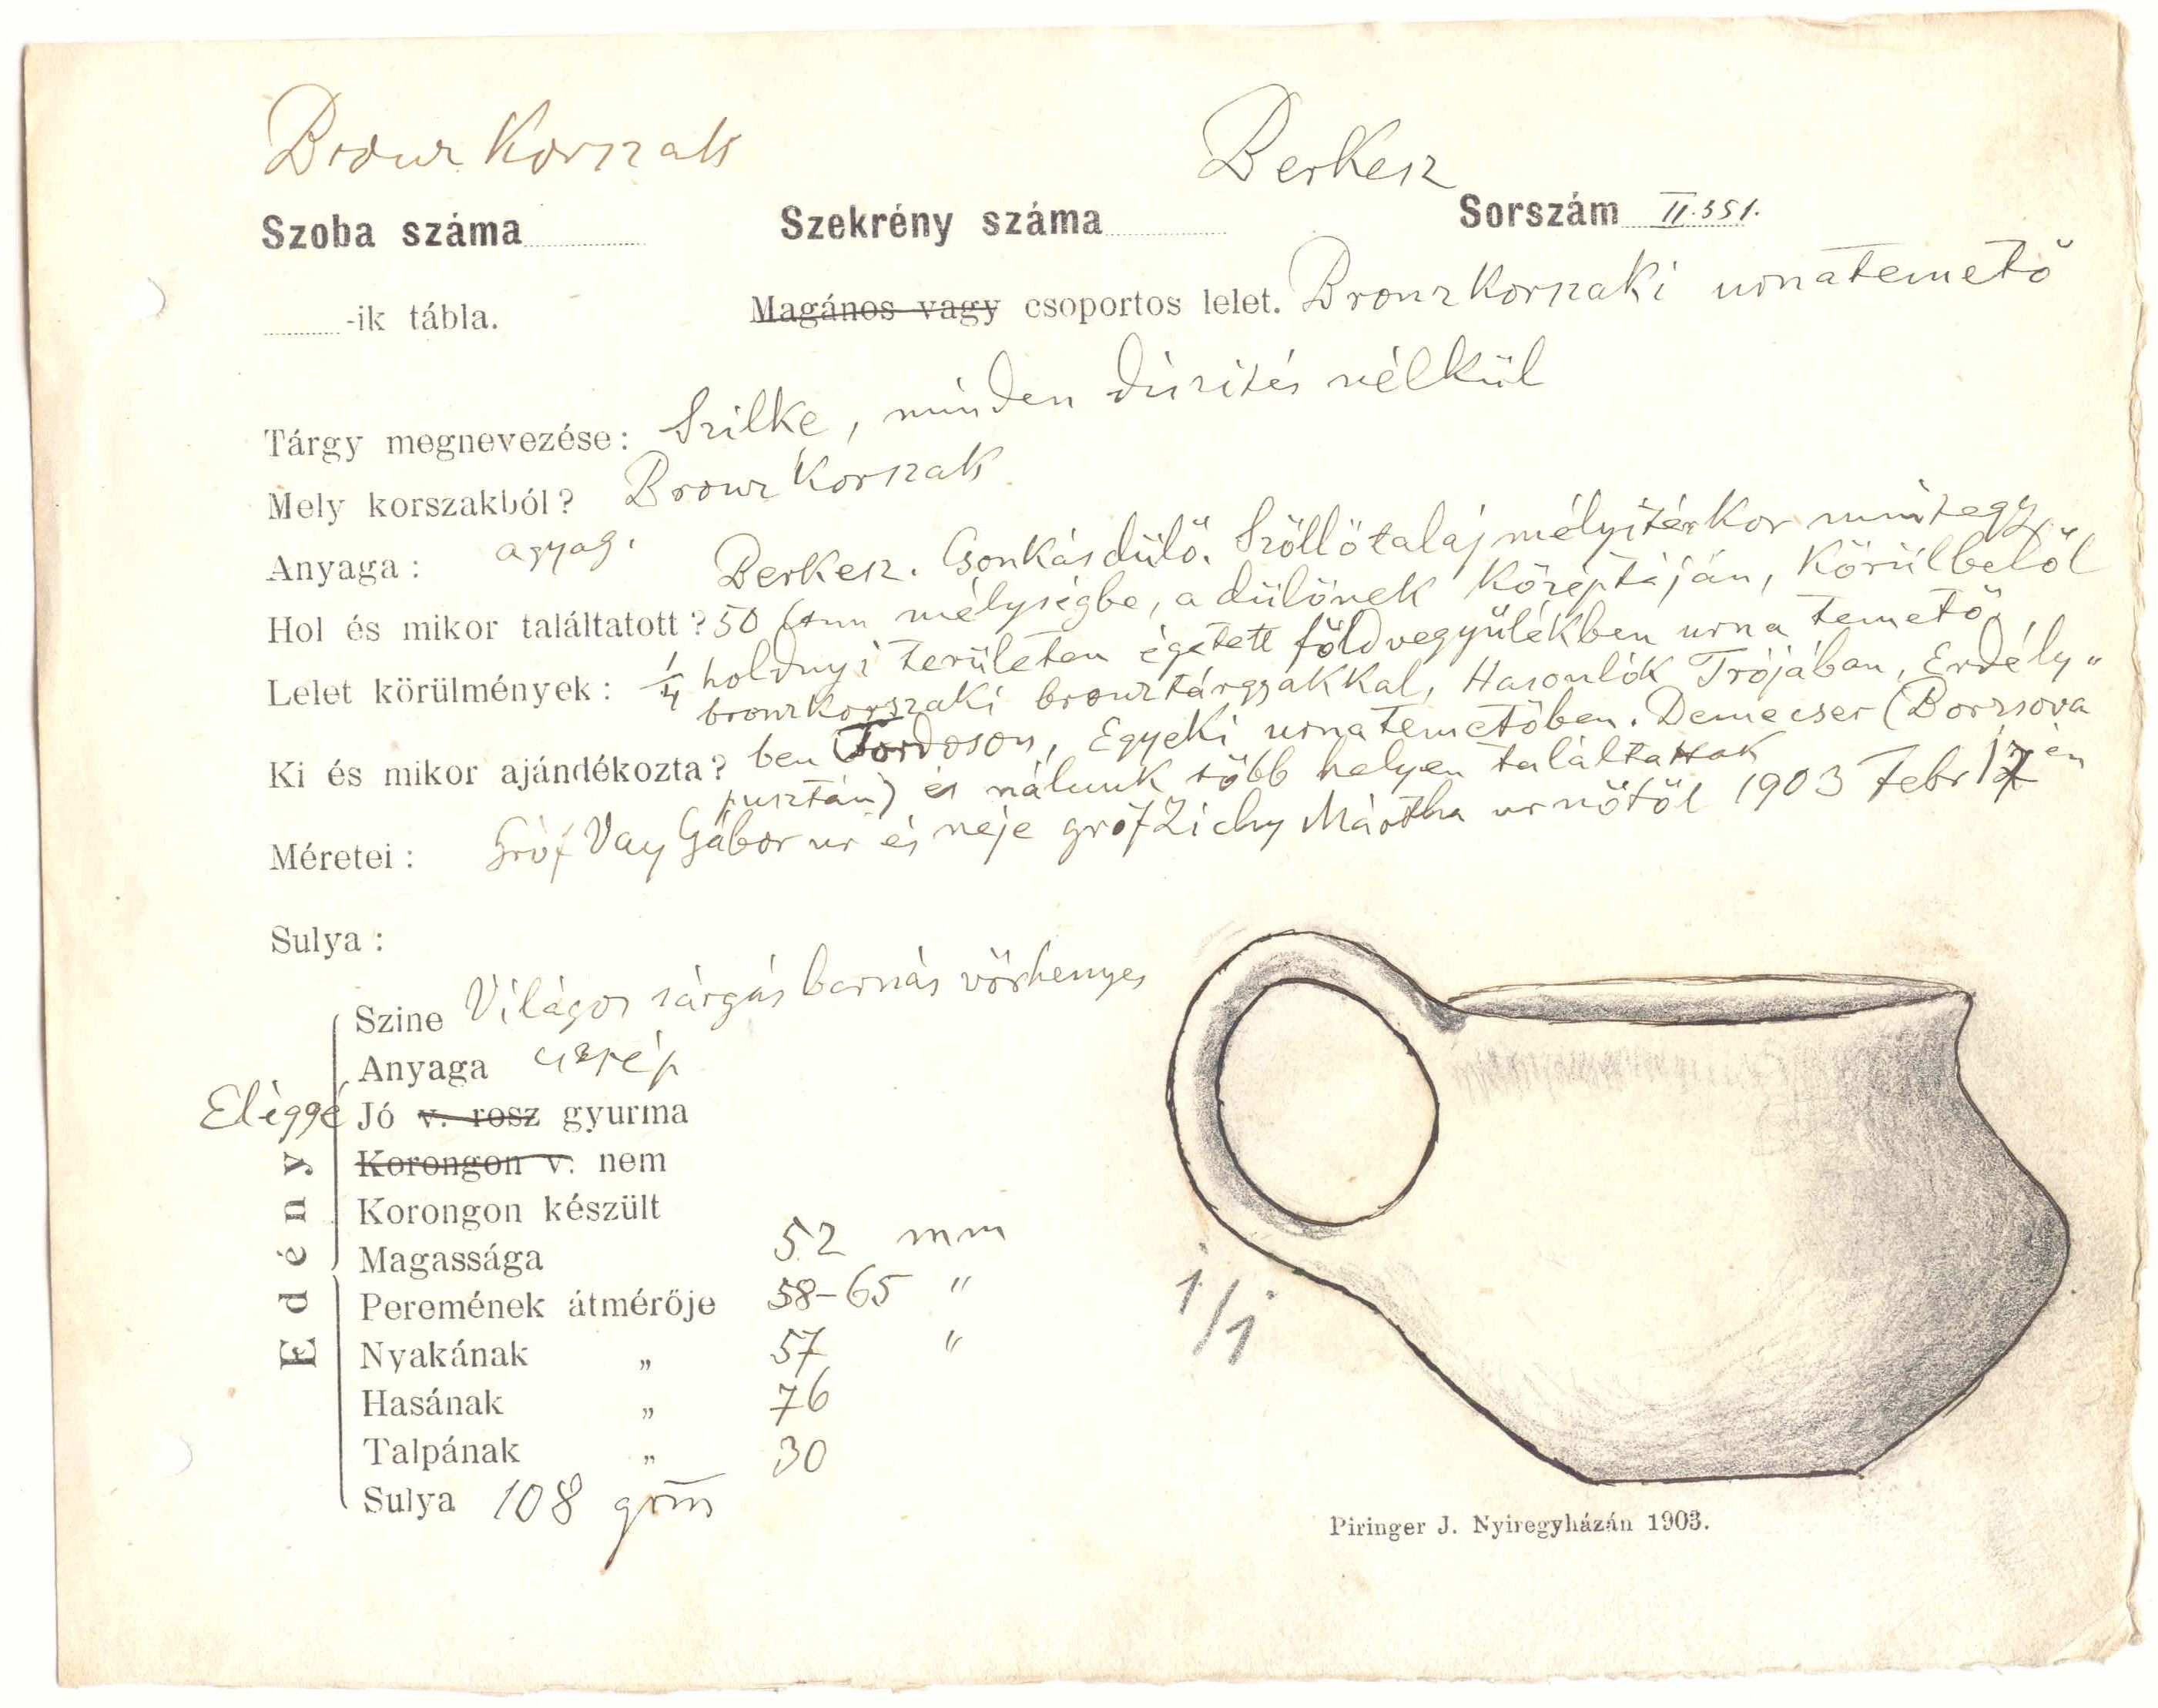 Bronz Korszak Berkesz
Szoba száma Szekrény száma Sorszám II.351.
-ik tábla. Magános vagy csoportos lelet. Bronz korszaki urnatemető
Tárgy megnevezése: Szilke, minden diszités nélkül
Mely korszakból? Bronz Korszak
Anyaga: agyag.
Berkesz. Csonkásdülő. Szőllőtalaj mélyitéskor mintegy
Hol és mikor találtatott? 50 ctnm mélységbe, a dülőnek középtáján, körülbelől
Lelet körülmények: 1/4 holdnyi területen égetett földvegyülékben urna temető,
bronzkorszaki bronztárgyakkal, Hasonlók Trójában, Erdély„
Ki és mikor ajándékozta? ben Tordoson, Egyeki urnatemetőben. Demecser (Borzsova
pusztán) és nálunk több helyen találtattak
Méretei: Gróf Vay Gábor ur és neje gróf Zichy Mártha urnőtől 1903 Febr 17 én
Sulya:
Edény
Szine Világos sárgás barnás vörhenyes
Anyaga cserép
Eléggé Jó v. rosz gyurma
Korongon v. nem
Korongon készült
Magassága 52 mm
Peremének átmérője 58-65 "
Nyakának „ 57 "
Hasának „ 76
Talpának „ 30
Sulya 108 grm
1/1
Piringer J. Nyiregyházán 1903.